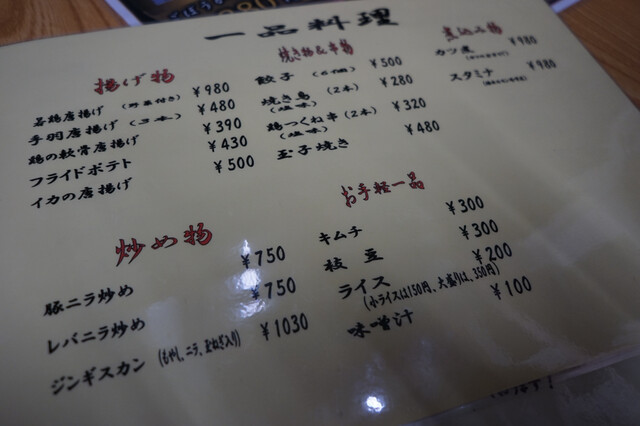 一品料理
揚げ物
若鶏唐揚げ (野菜付き) ¥980
手羽唐揚げ (3本) ¥480
鶏の軟骨唐揚げ ¥390
フライドポテト ¥430
イカの唐揚げ ¥500
焼き物&串物
餃子 (6個) ¥500
焼き鳥 (2本) ¥280
(塩味)
鶏つくね串 (2本) ¥320
(塩味)
玉子焼き ¥480
煮込み物
カツ煮 ¥980
スタミナ ¥980
炒め物
豚ニラ炒め ¥750
レバニラ炒め ¥750
ジンギスカン (もやし、ニラ、玉ねぎ入り) ¥1030
お手軽一品
キムチ ¥300
枝豆 ¥300
ライス ¥200
(小ライスは150円、大盛りは、350円)
味噌汁 ¥100